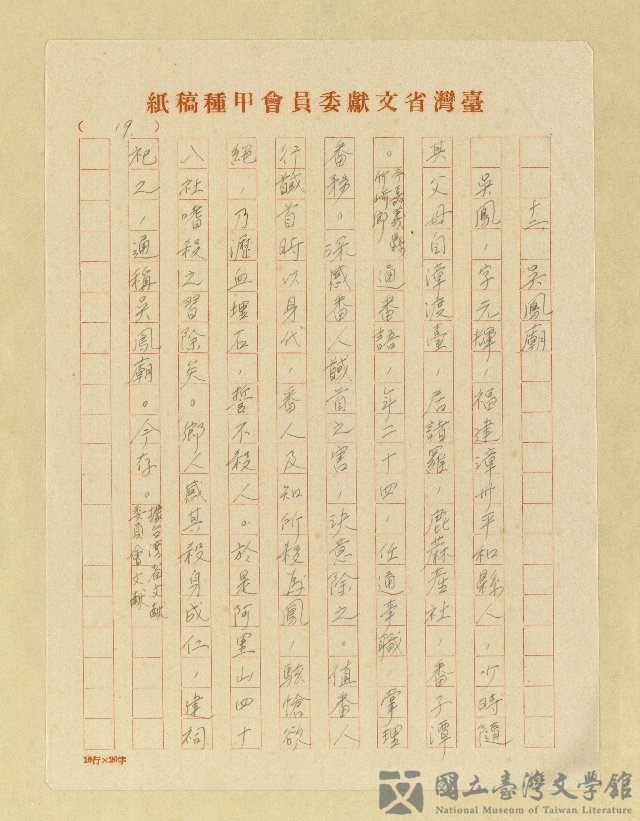 臺灣省文獻委員會甲種稿紙
( 19. )
十二 吳鳳廟
吳鳳，字元輝，福建漳州平和縣人，少時隨
其父母自漳渡臺，居諸羅，鹿蔴產社，番子潭
。今嘉義縣竹崎鄉 通番語，年二十四，任通事職，掌理
番務。深感番人馘首之害，決意除之。值番人
行馘首時以身代，番人及知所殺為鳳，駭愴欲
絕，乃瀝血埋石，誓不殺人。於是阿里山四十
八社嗜殺之習除矣。鄉人感其殺身成仁，建祠
祀之，通稱吳鳳廟。今存。據台灣省文獻委員會文獻
10行×20字
國立臺灣文學館
National Museum of Taiwan Literature